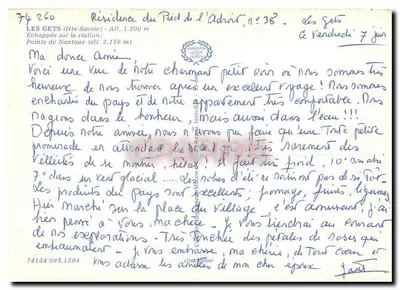 74260 Résidence du Pied de l'Adroit, n° 38. Les Gets
LES GETS (Hte-Savoie) - Alt. 1.200 m
Ce vendredi 7 juin
Echappée sur la station;
Pointe de Nantaux (alt. 2.176 m)
Ma douce Amie,
Voici une vue de notre charmant petit coin où nous sommes très
heureux de nous trouver après un excellent voyage! Nous sommes
enchantés du pays et de notre appartement très confortable. Nous
nageons dans le bonheur mais aussi dans l'eau!!!
Depuis notre arrivée, nous n'avons pu faire que une toute petite
promenade en attendant le soleil qui a très rarement des
velléités de se montrer, hélas! Il fait un froid, 10° 
7° dans un vent glacial.... les robes d'été ne sortiront pas de si tôt.
Les produits du pays sont excellents; fromage, fruits, légumes
Hier marché sur la place du village - c'est amusant, j'ai
bien pensé à vous, ma chère - Je vous tiendrai au courant
de nos explorations - Très touchée des pétales de roses qui
embaumaient - Je vous embrasse, ma chérie, de tout cœur et
vous adresse les amitiés de mon cher époux
74134 093.1304